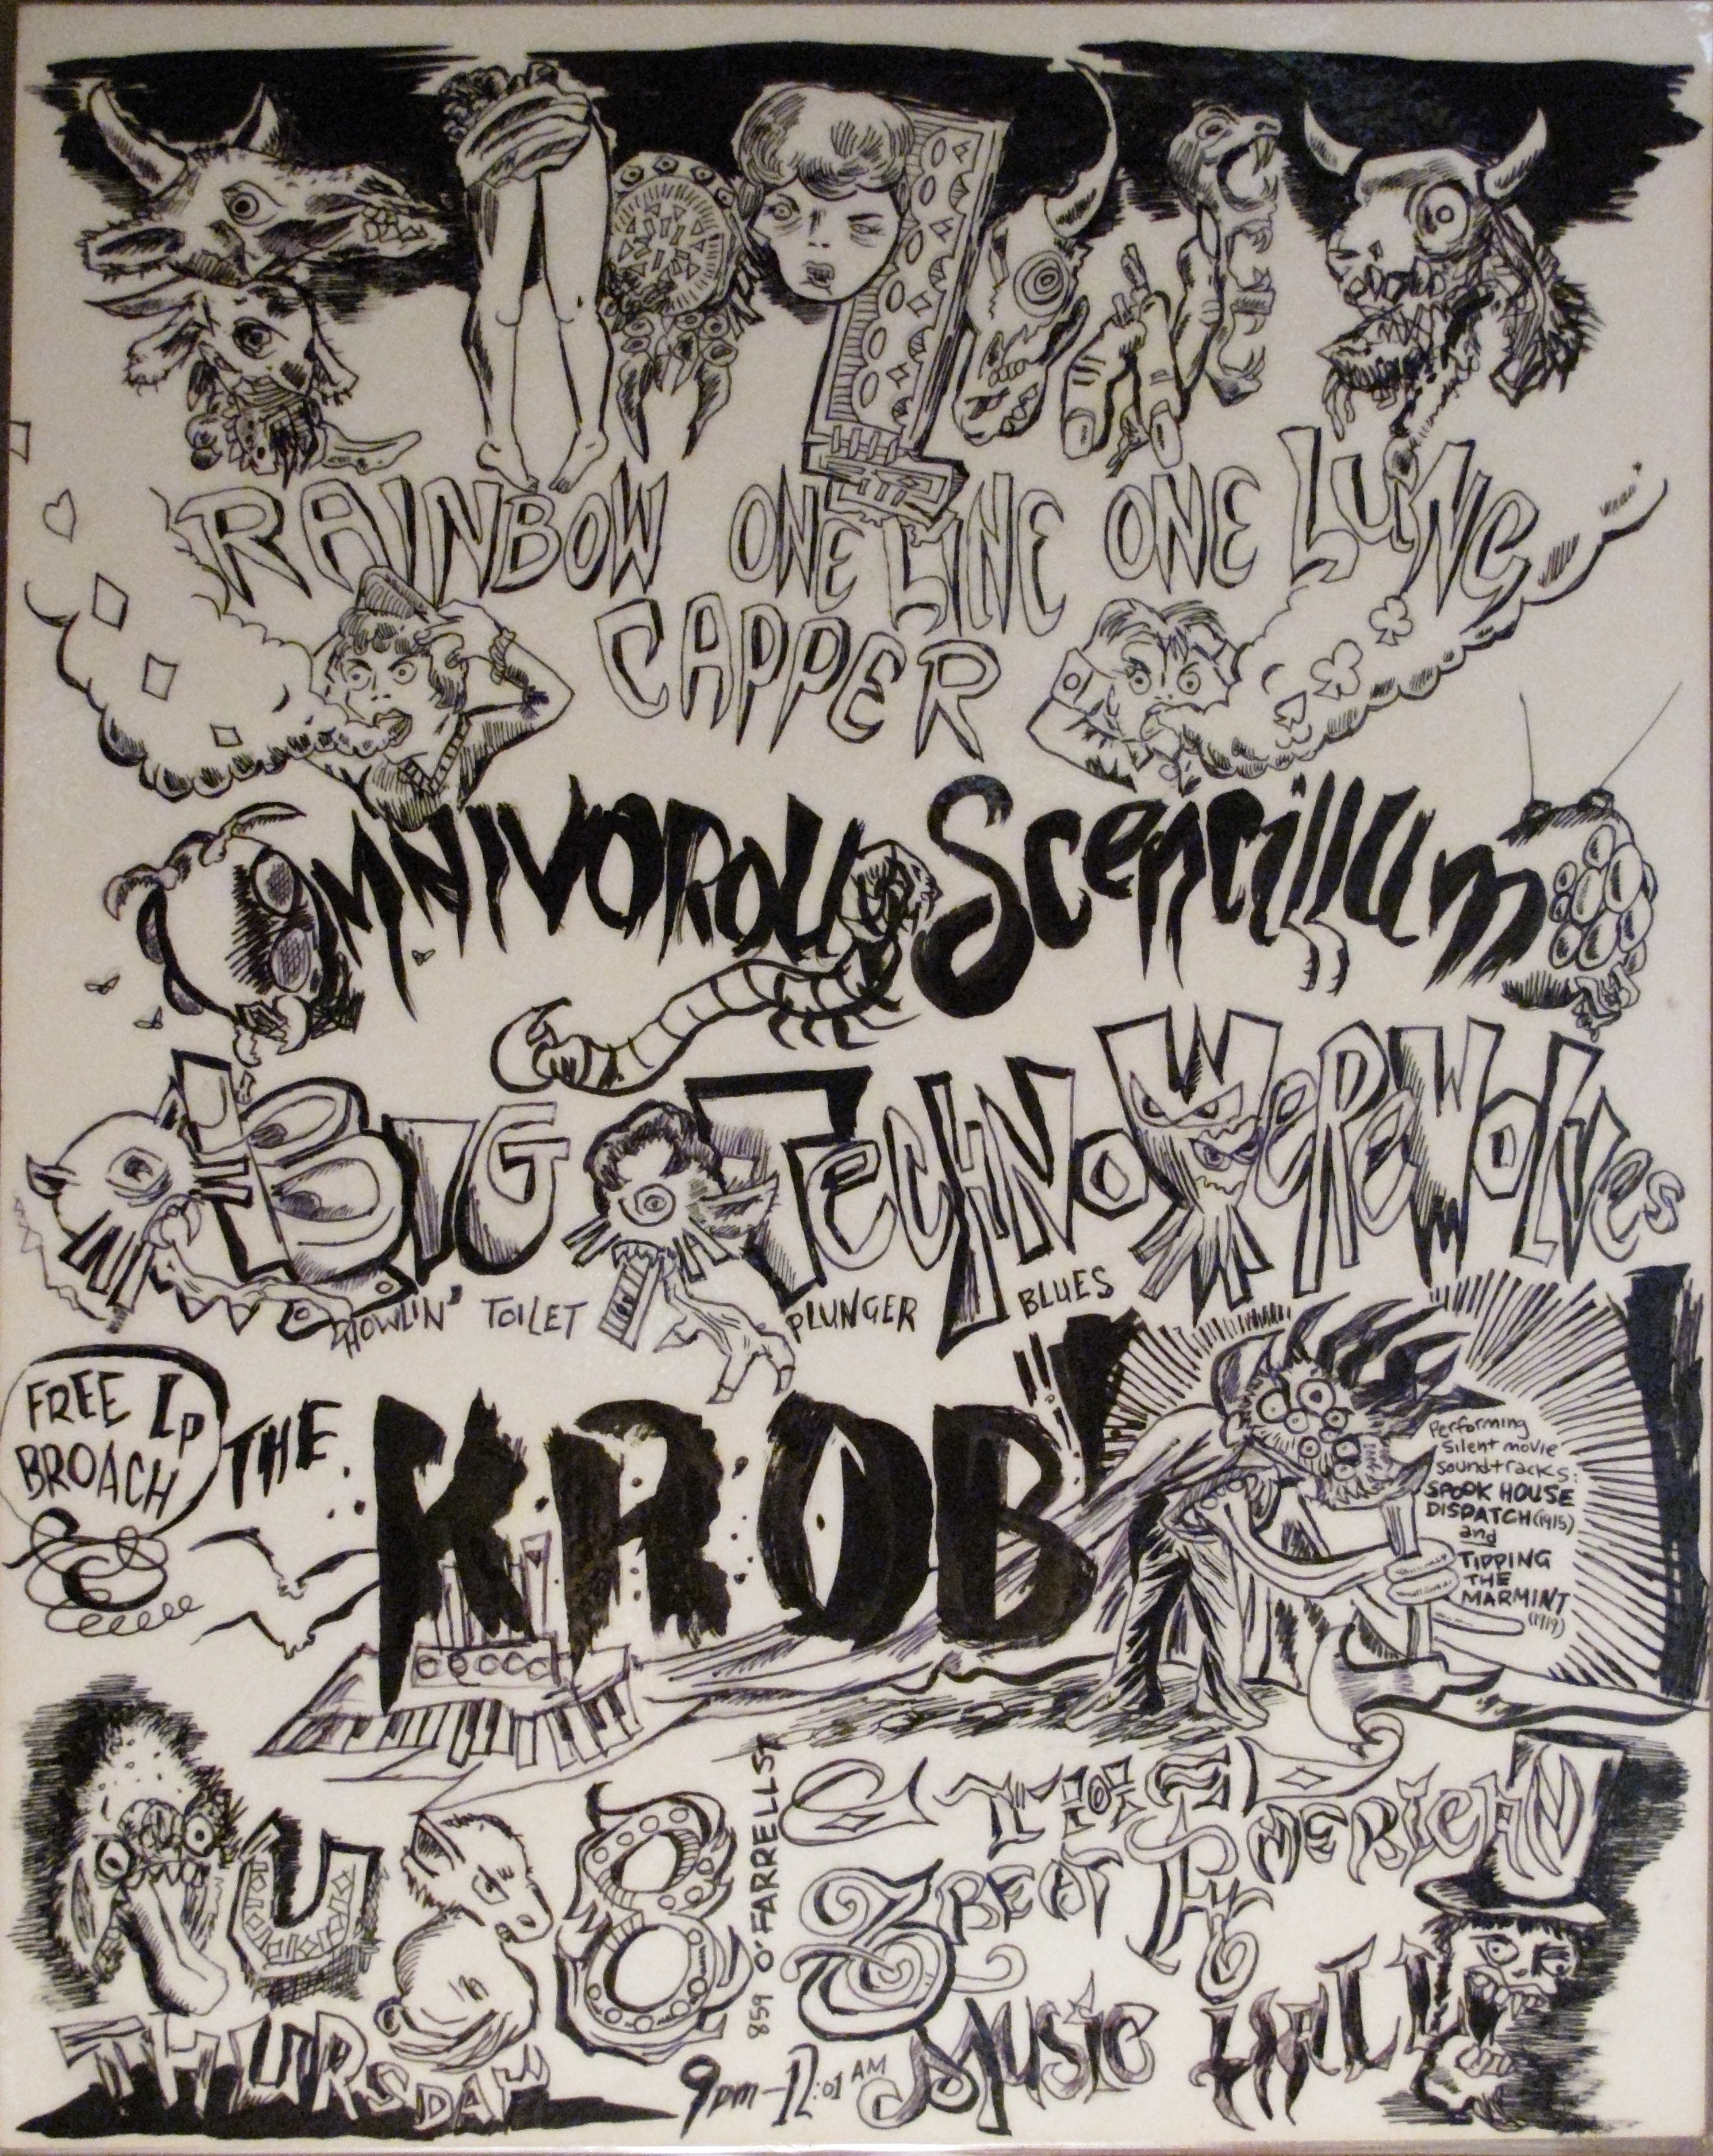 RAINBOW ONE LINE ONE LUNG
CAPPER
OMNIVOROUS Scencillum
BIG TECHNO WEREWOLVES
HOWLIN' TOILET PLUNGER BLUES
FREE LP
BROACH
THE KROB
Performing
Silent movie
soundtracks:
SPOOK HOUSE
DISPATCH (1915)
and
TIPPING
THE
MARMINT
(1919)
AUG 8
THURSDAY
859 O'FARRELL ST
9pm-12:01 AM
@ THE
GREAT AMERICAN
MUSIC HALL